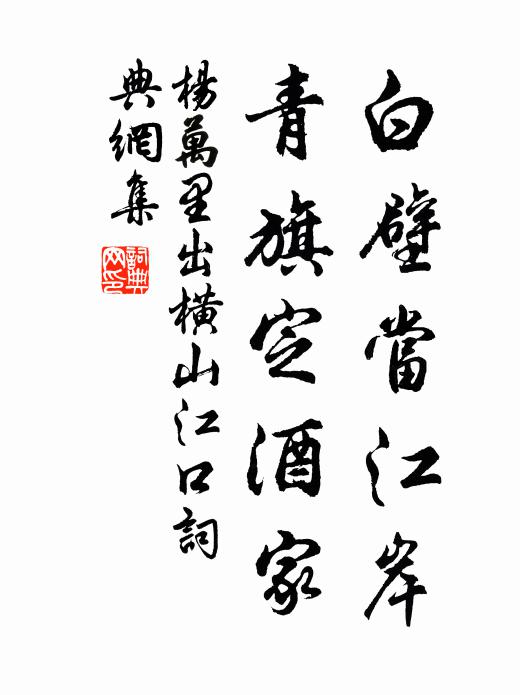 白壁當江岸
青旗定酒家
楊萬里出橫山江口詞
典網集
詞典
网印